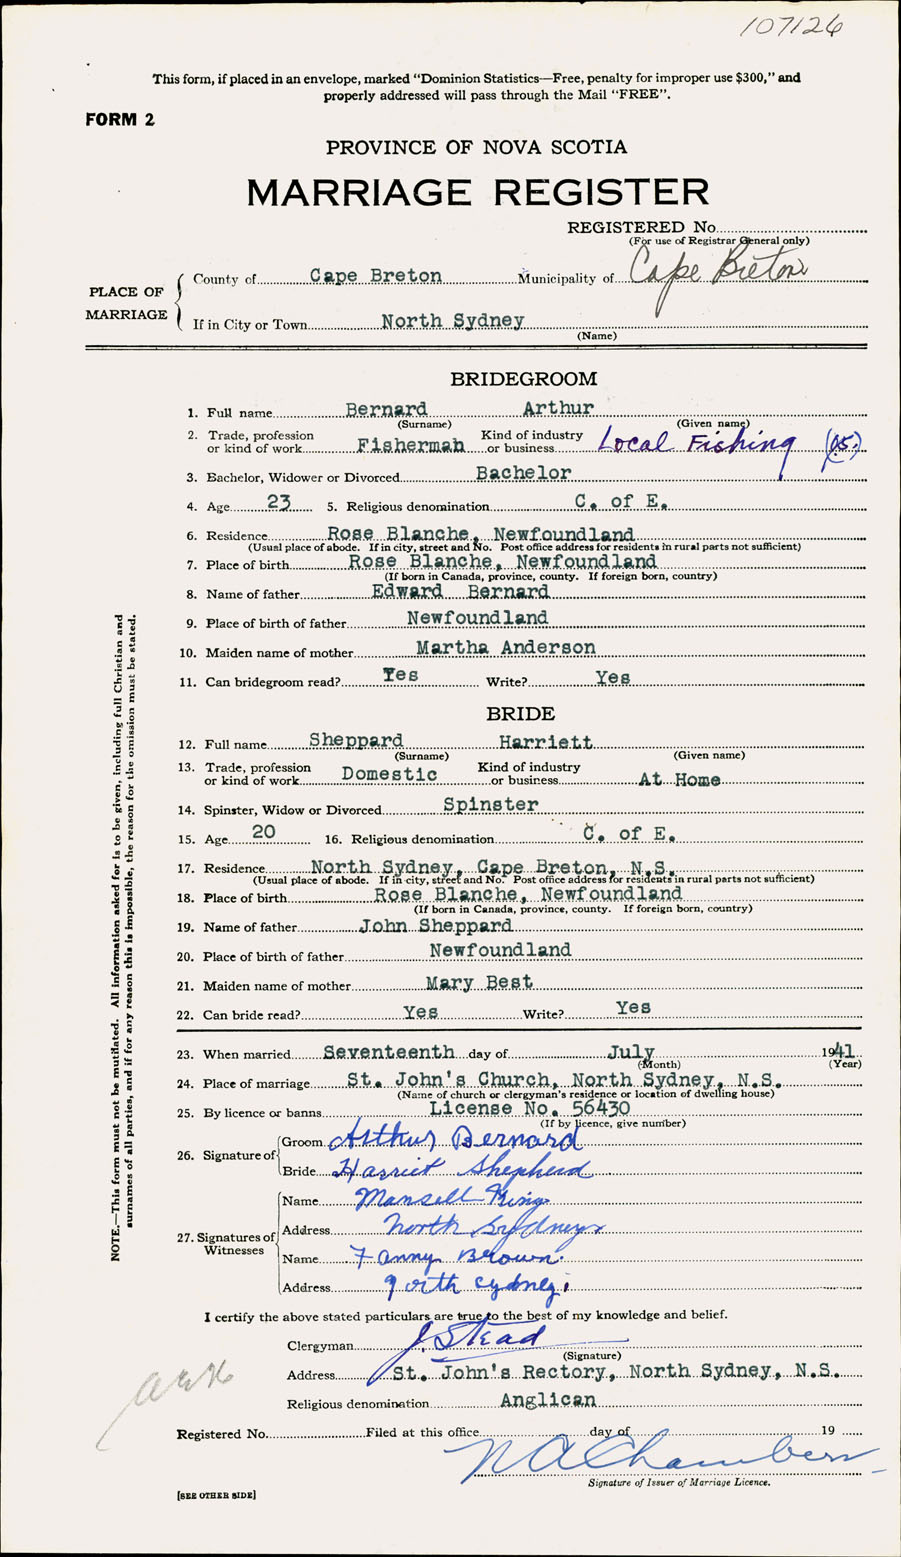 107126
This form, if placed in an envelope, marked "Dominion Statistics—Free, penalty for improper use $300," and
properly addressed will pass through the Mail "FREE".
FORM 2
PROVINCE OF NOVA SCOTIA
MARRIAGE REGISTER
REGISTERED No.
(For use of Registrar General only)
PLACE OF MARRIAGE
County of Cape Breton Municipality of Cape Breton
If in City or Town North Sydney
(Name)
BRIDEGROOM
1. Full name Bernard Arthur
(Surname) (Given name)
2. Trade, profession or kind of work Fisherman Kind of industry or business Local Fishing (05.)
3. Bachelor, Widower or Divorced Bachelor
4. Age 23 5. Religious denomination C. of E.
6. Residence Rose Blanche, Newfoundland
(Usual place of abode. If in city, street and No. Post office address for residents in rural parts not sufficient)
7. Place of birth Rose Blanche, Newfoundland
(If born in Canada, province, county. If foreign born, country)
8. Name of father Edward Bernard
9. Place of birth of father Newfoundland
10. Maiden name of mother Martha Anderson
11. Can bridegroom read? Yes Write? Yes
BRIDE
12. Full name Sheppard Harriett
(Surname) (Given name)
13. Trade, profession or kind of work Domestic Kind of industry or business At Home
14. Spinster, Widow or Divorced Spinster
15. Age 20 16. Religious denomination C. of E.
17. Residence North Sydney, Cape Breton, N.S.
(Usual place of abode. If in city, street and No. Post office address for residents in rural parts not sufficient)
18. Place of birth Rose Blanche, Newfoundland
(If born in Canada, province, county. If foreign born, country)
19. Name of father John Sheppard
20. Place of birth of father Newfoundland
21. Maiden name of mother Mary Best
22. Can bride read? Yes Write? Yes
23. When married Seventeenth day of July 1941
(Month) (Year)
24. Place of marriage St. John's Church, North Sydney, N.S.
(Name of church or clergyman's residence or location of dwelling house)
25. By licence or banns License No. 56430
(If by licence, give number)
26. Signature of
Groom Arthur Bernard
Bride Harriet Shepherd
27. Signatures of Witnesses
Name Mansell King
Address North Sydney
Name Fanny Brown.
Address North Sydney.
I certify the above stated particulars are true to the best of my knowledge and belief.
Clergyman J. Stead
(Signature)
Address St. John's Rectory, North Sydney, N.S.
Religious denomination Anglican
Registered No. Filed at this office day of 19
N A Chambers
Signature of Issuer of Marriage Licence.
[SEE OTHER SIDE]
NOTE.—This form must not be mutilated. All information asked for is to be given, including full Christian and
surnames of all parties, and if for any reason this is impossible, the reason for the omission must be stated.